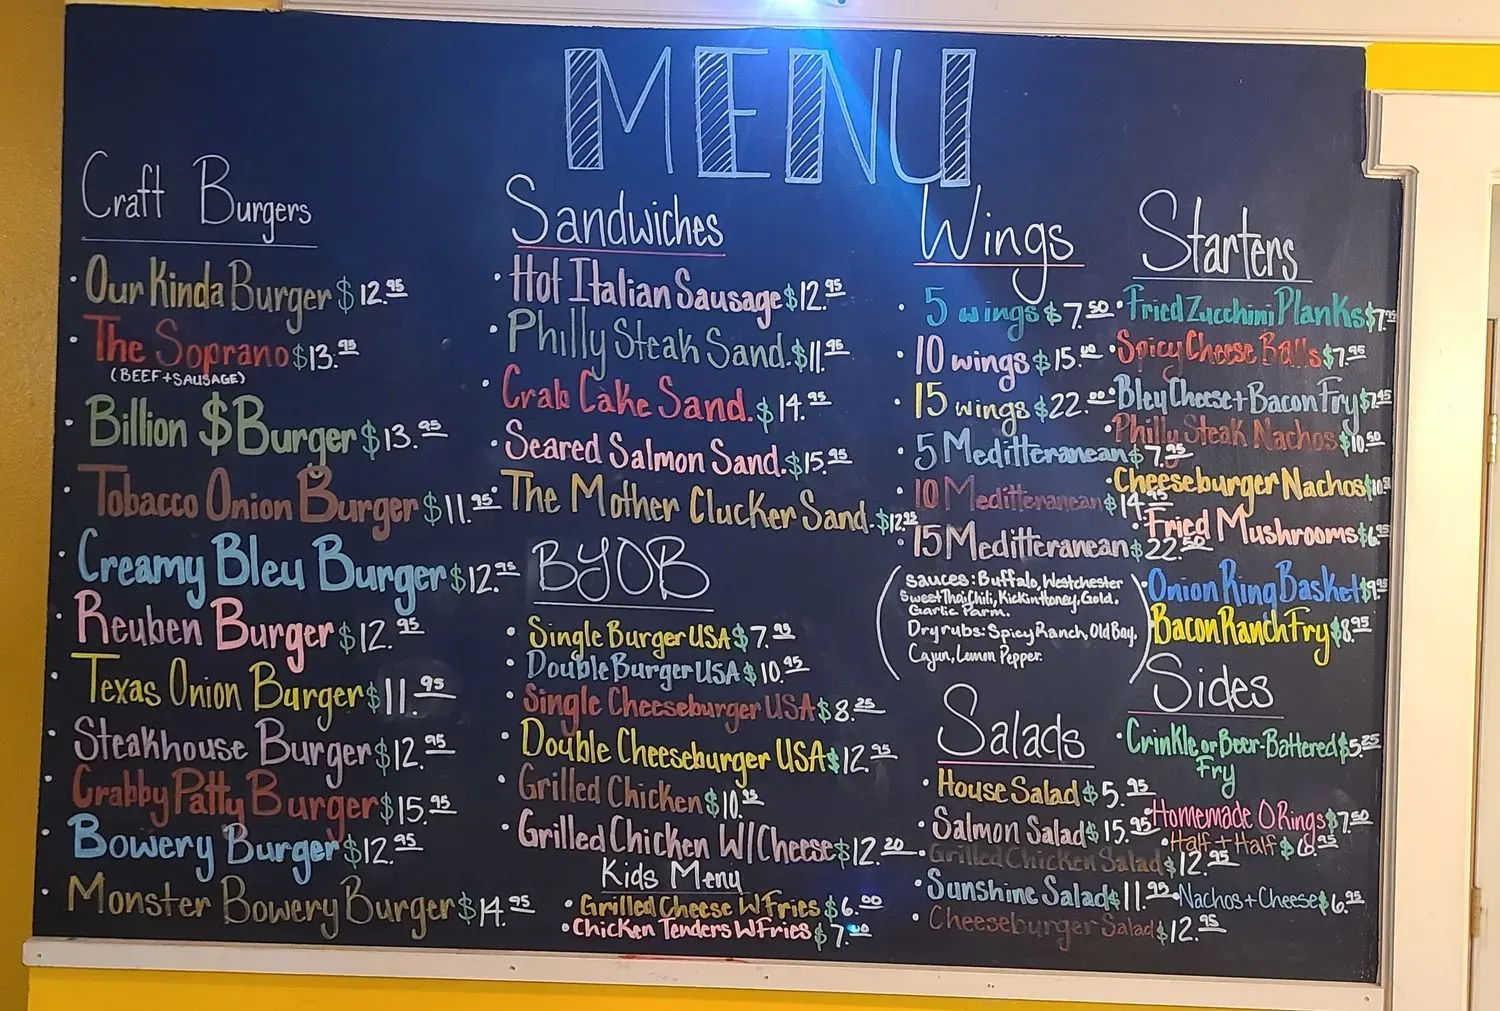 MENU
Craft Burgers
• Our Kinda Burger $12.95
• The Soprano $13.95
(BEEF+SAUSAGE)
• Billion $ Burger $13.95
• Tobacco Onion Burger $11.95
• Creamy Bleu Burger $12.95
• Reuben Burger $12.95
• Texas Onion Burger $11.95
• Steakhouse Burger $12.95
• Crabby Patty Burger $15.95
• Bowery Burger $12.95
• Monster Bowery Burger $14.95
Sandwiches
• Hot Italian Sausage $12.95
• Philly Steak Sand. $11.95
• Crab Cake Sand. $14.95
• Seared Salmon Sand. $15.95
• The Mother Clucker Sand. $12.95
BYOB
• Single Burger USA $7.95
• Double Burger USA $10.95
• Single Cheeseburger USA $8.25
• Double Cheeseburger USA $12.95
• Grilled Chicken $10.95
• Grilled Chicken W/Cheese $12.20
Kids Menu
• Grilled Cheese W Fries $6.00
• Chicken Tenders W Fries $7.00
Wings
• 5 wings $7.50
• 10 wings $15.00
• 15 wings $22.00
• 5 Meditteranean $7.95
• 10 Meditteranean $14.95
• 15 Meditteranean $22.50
(Sauces: Buffalo, Westchester
Sweet Thai Chili, Kickin Honey, Gold.
Garlic Parm.
Dry rubs: Spicy Ranch, Old Bay,
Cajun, Lemon Pepper.)
Salads
• House Salad $5.95
• Salmon Salad $15.95
• Grilled Chicken Salad $12.95
• Sunshine Salad $11.95
• Cheeseburger Salad $12.95
Starters
• Fried Zucchini Planks $7.95
• Spicy Cheese Balls $7.95
• Bleu Cheese + Bacon Fry $7.95
• Philly Steak Nachos $10.50
• Cheeseburger Nachos $10.50
• Fried Mushrooms $6.95
• Onion Ring Basket $9.95
• Bacon Ranch Fry $8.95
Sides
• Crinkle or Beer-Battered $5.25
Fry
• Homemade O Rings $7.50
• Half + Half $6.95
• Nachos + Cheese $6.95